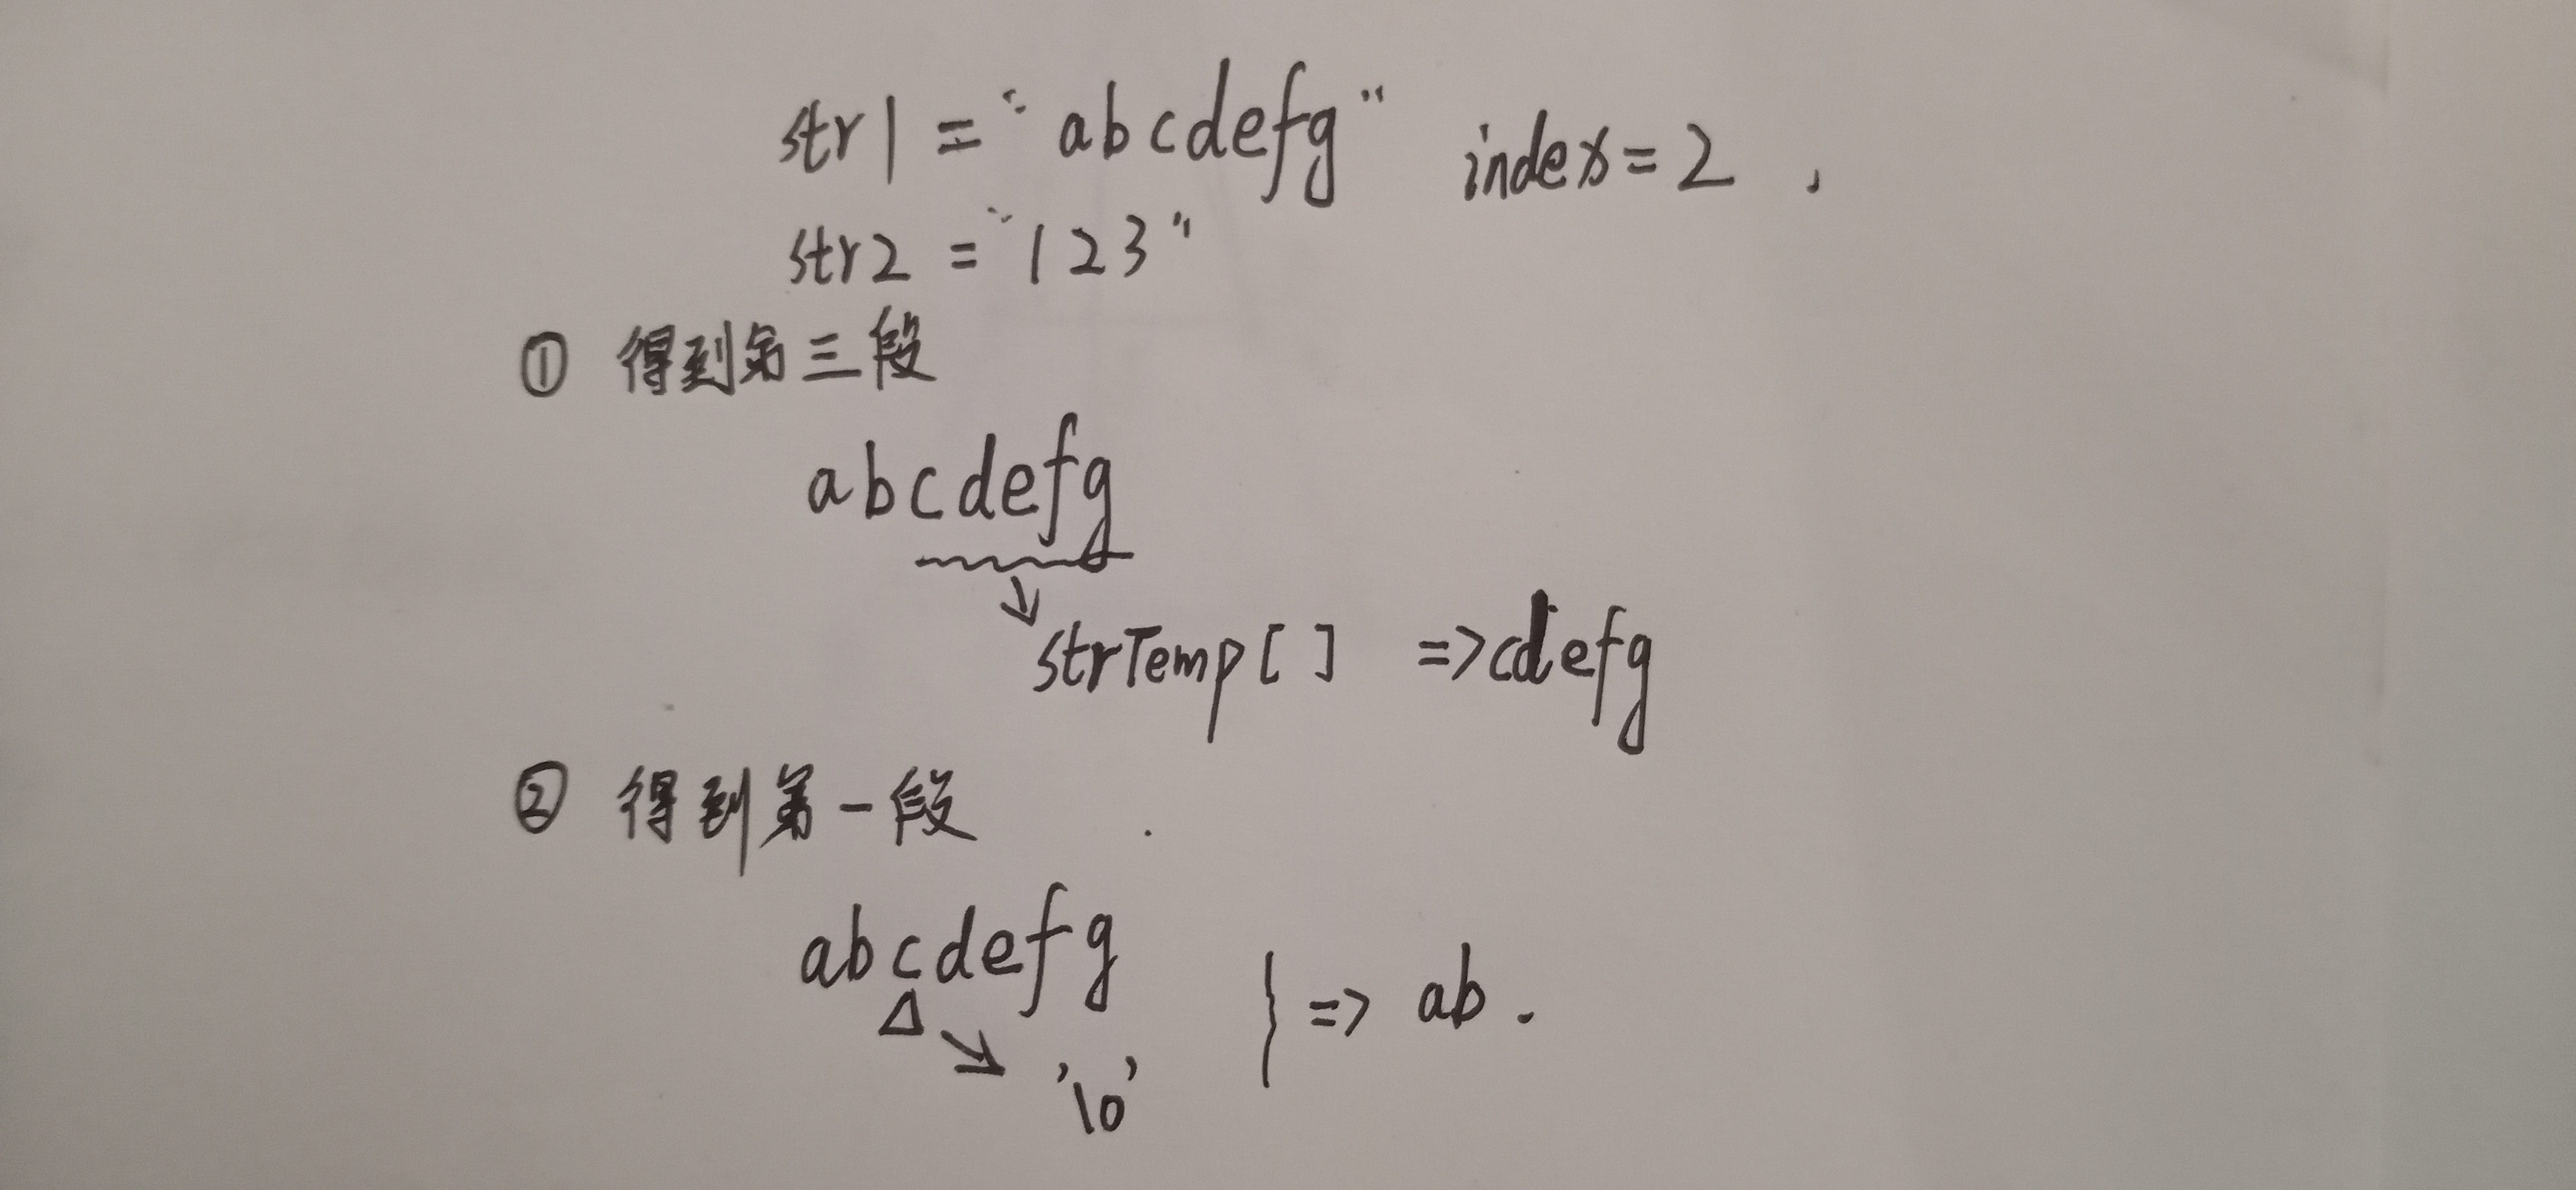 str1 = "abcdefg" index=2 ,
str2 = "123"
① 得到第三段
abcdefg
strTemp[ ] =>cdefg
② 得到第一段
abcdefg
} => ab .
'\0'